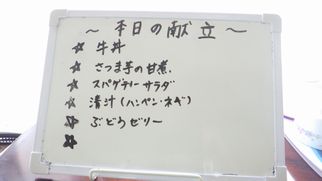 ～本日の献立～
☆ 牛丼
☆ さつま芋の甘煮.
☆ スパゲティーサラダ
☆ 清汁(ハンペン・ネギ)
☆ ぶどうゼリー
☆